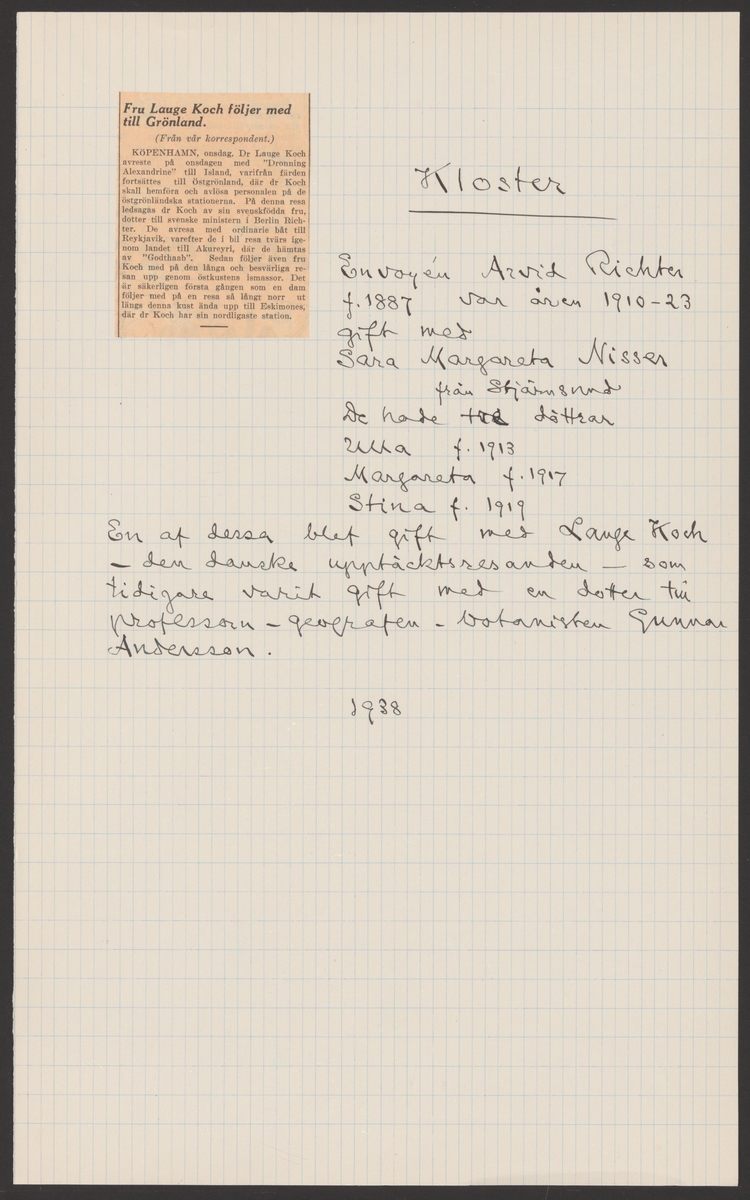 Fru Lauge Koch följer med
till Grönland.
(Från vår korrespondent.)
KÖPENHAMN, onsdag. Dr Lauge Koch
avreste på onsdagen med "Dronning
Alexandrine" till Island, varifrån färden
fortsättes till Östgrönland, där dr Koch
skall hemföra och avlösa personalen på de
östgrönländska stationerna. På denna resa
ledsagas dr Koch av sin svenskfödda fru,
dotter till svenske ministern i Berlin Rich-
ter. De avresa med ordinarie båt till
Reykjavik, varefter de i bil resa tvärs ige-
nom landet till Akureyri, där de hämtas
av "Godthaab". Sedan följer även fru
Koch med på den långa och besvärliga re-
san upp genom östkustens ismassor. Det
är säkerligen första gången som en dam
följer med på en resa så långt norr ut
längs denna kust ända upp till Eskimones,
där dr Koch har sin nordligaste station.
Kloster
Envoyén Arvid Richter
f. 1887 var åren 1910-23
gift med
Sara Margareta Nisser
från Stjärnsund
De hade tre döttrar
Ulla f. 1913
Margareta f. 1917
Stina f. 1919
En af dessa blef gift med Lauge Koch
- den danske upptäcktsresanden - som
tidigare varit gift med en dotter till
professorn - geografen - botanisten Gunnar
Andersson.
1938